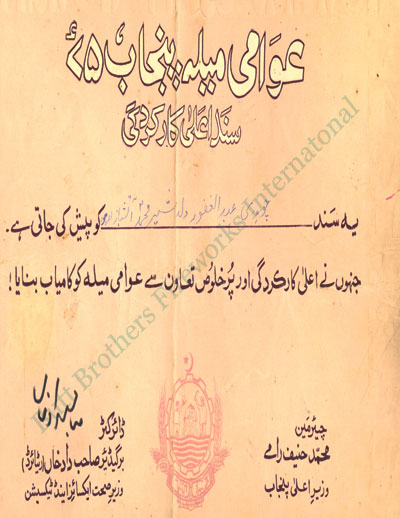 عوامی میلہ پنجاب ۷۵ء
سند اعلیٰ کارکردگی
یہ سند چوہدری عبدالغفور ولد کو پیش کی جاتی ہے۔
جنہوں نے اعلیٰ کارکردگی اور پُرخلوص تعاون سے عوامی میلہ کو کامیاب بنایا!
چیئرمین
محمد حنیف رامے
وزیر اعلیٰ پنجاب
ڈائرکٹر
برگیڈیر صاحب داد خاں (ریٹائرڈ)
وزیر صحت ایکسائز اینڈ ٹیکسیشن
Butt Brothers Fireworks International